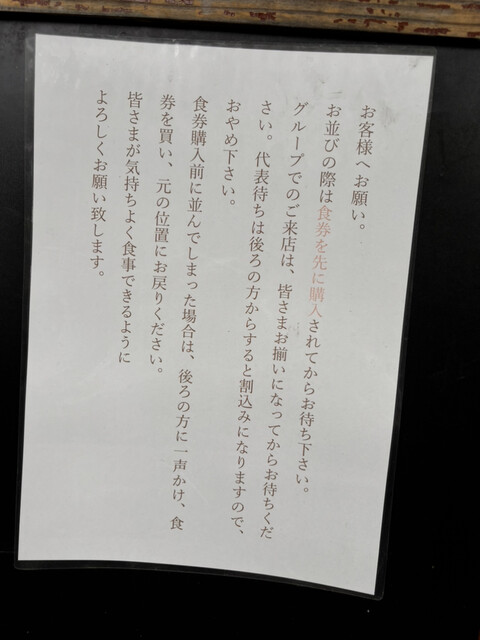 お客様へお願い。
お並びの際は食券を先に購入されてからお待ち下さい。
グループでのご来店は、皆さまお揃いになってからお待ちくだ
さい。代表待ちは後ろの方からすると割込みになりますので、
おやめ下さい。
食券購入前に並んでしまった場合は、後ろの方に一声かけ、食
券を買い、元の位置にお戻りください。
皆さまが気持ちよく食事できるように
よろしくお願い致します。